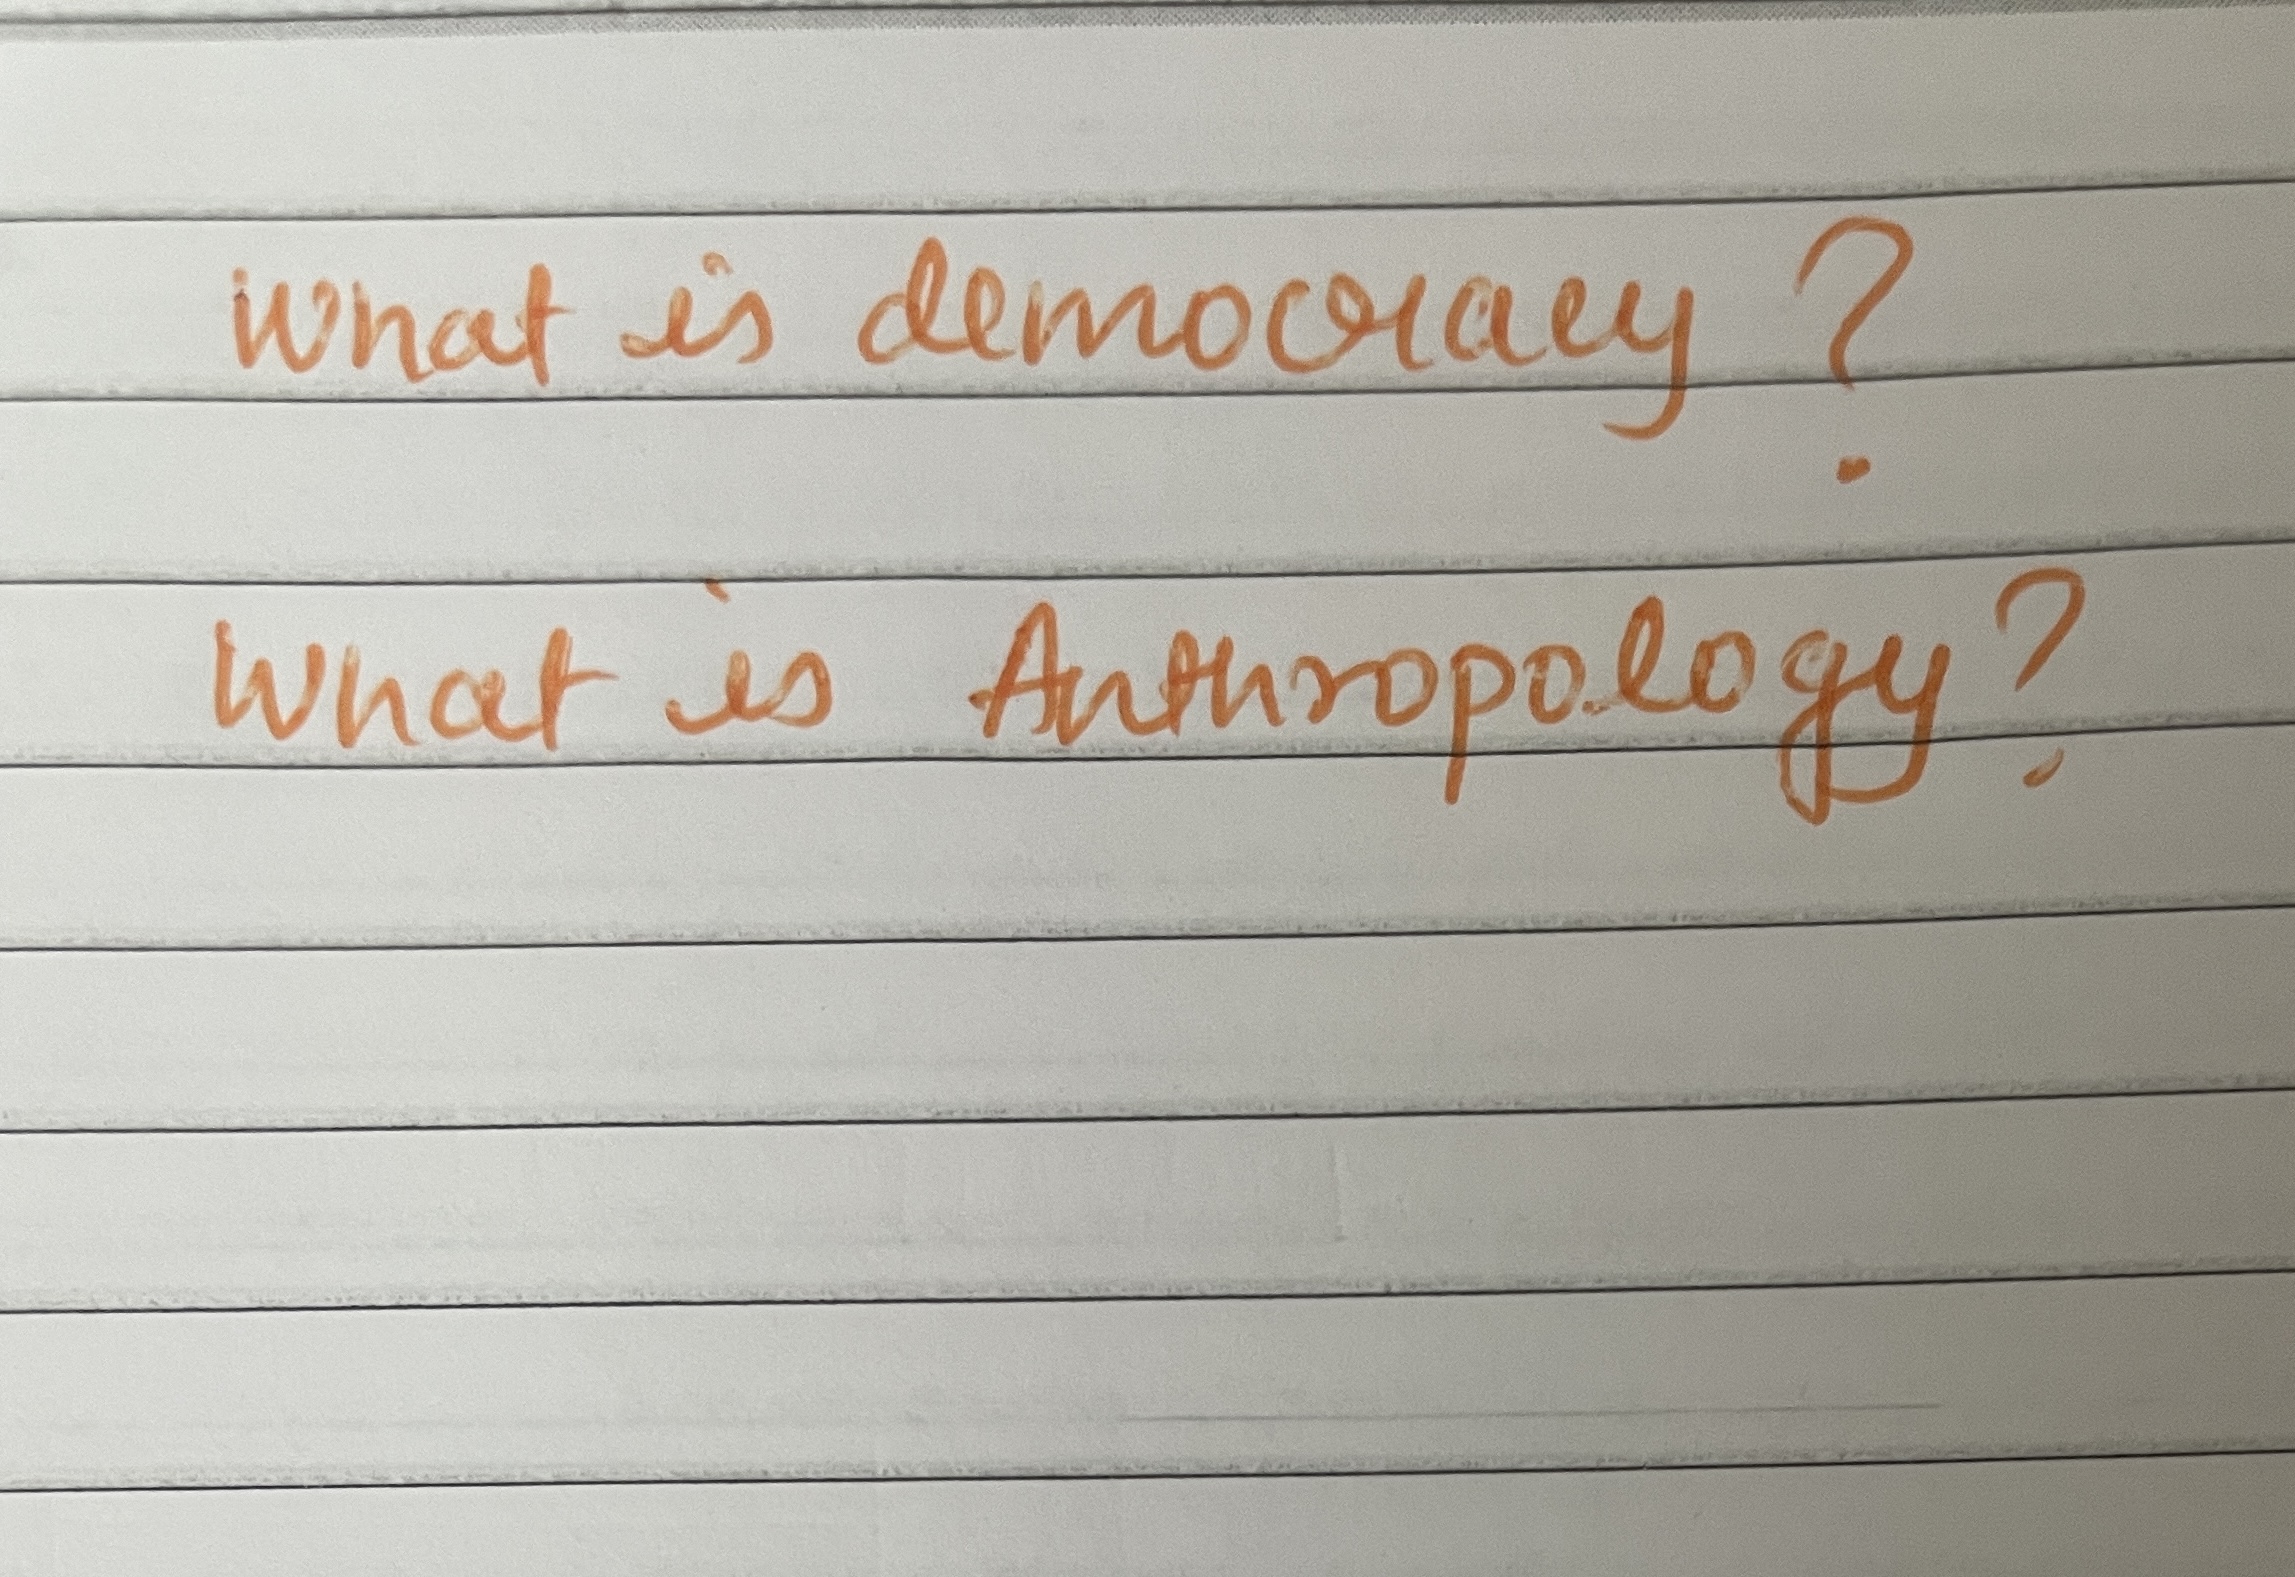 What is democracy?
What is Anthropology?